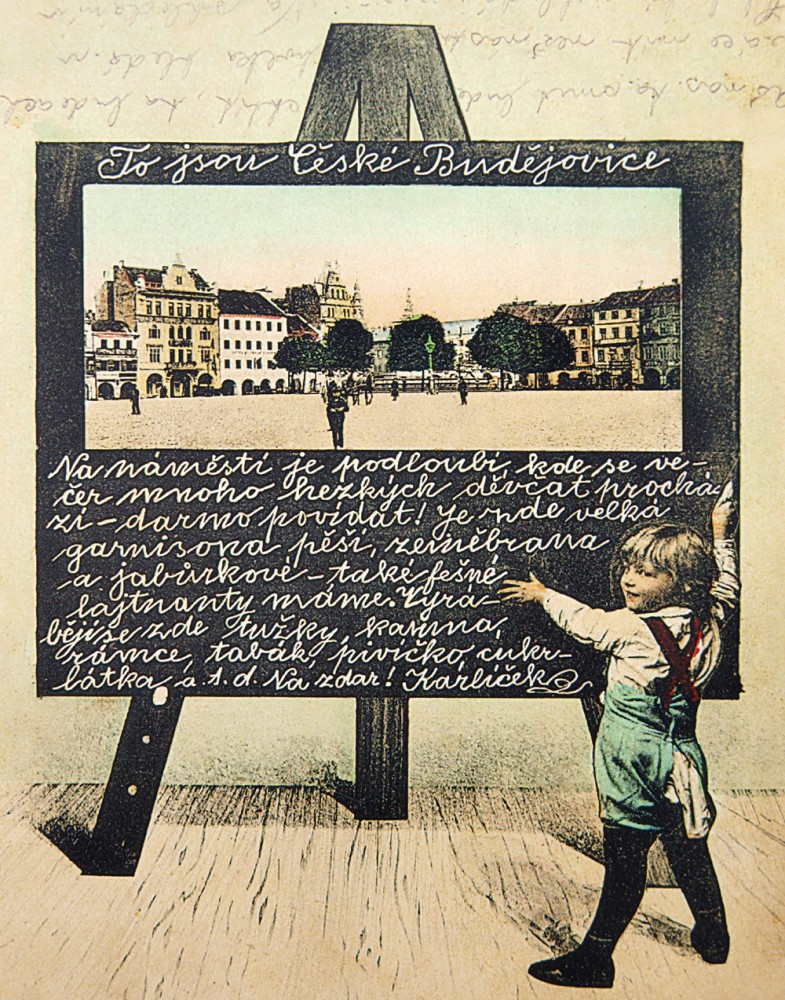 To jsou České Budějovice
Na náměstí je podloubí, kde se ve-
čer mnoho hezkých děvčat prochá-
zí - darmo povídat! Je zde velká
garnisona pěší, zeměbrana
a jabůrkové - také fešné
lajtnanty máme. Vyrá-
bějí se zde tužky, kamna,
rámce, tabák, pivíčko, cukr-
bátka a. t. d. Na zdar! Karlíček